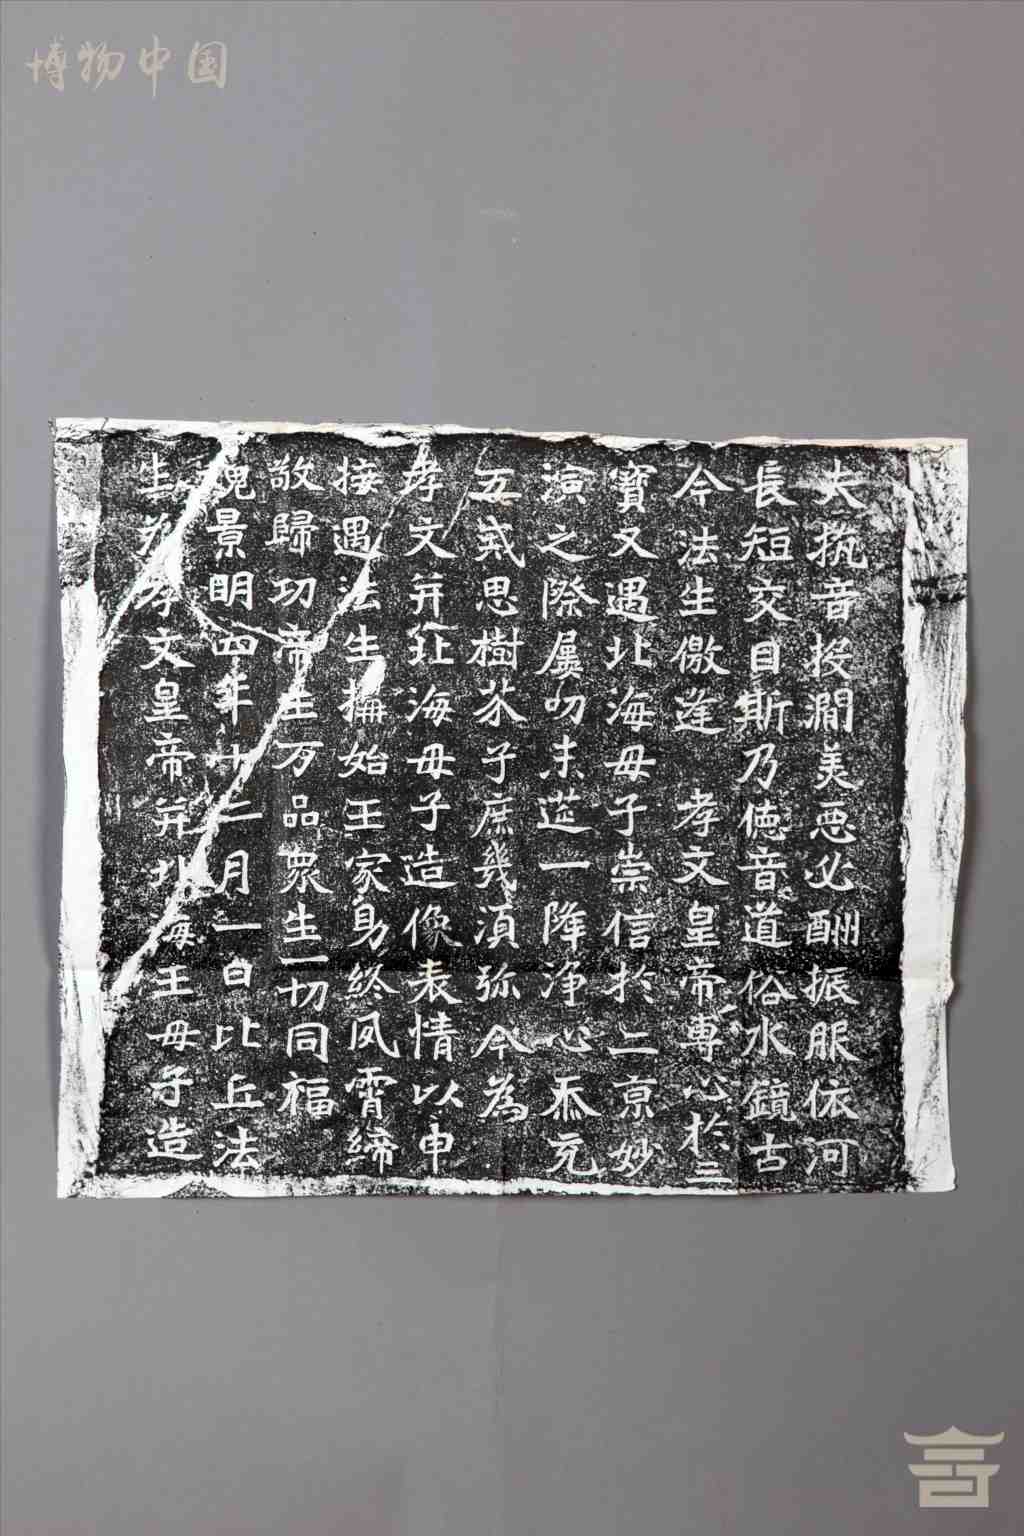 博物中国
夫抗音投澗美惡必酬振服依河
長短交目斯乃德音道俗水鏡古
今法生儌逢 孝文皇帝專心於三
寶又遇北海母子崇信於二京妙
演之際屢叨末莚一降淨心忝充
五戒思樹芥子庶幾須弥今為
孝文并北海母子造像表情以申
接遇法生構始王家身終夙霄締
敬歸功帝主万品眾生一切同福
魏景明四年十二月一日比丘法
生為孝文皇帝并北海王母子造